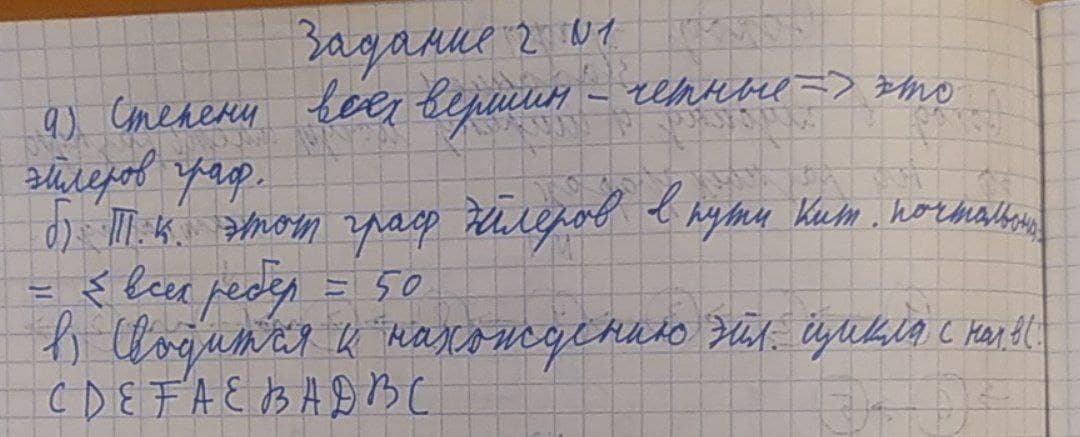 Задание 2 №1
а) Степени всех вершин - четные => это
эйлеров граф.
б) Т.к. этот граф Эйлеров в пути кит. почтальона
= Σ всех ребер = 50
в) Сводится к нахождению эйл. цикла с нач. в C:
C D E F A E B A D B C